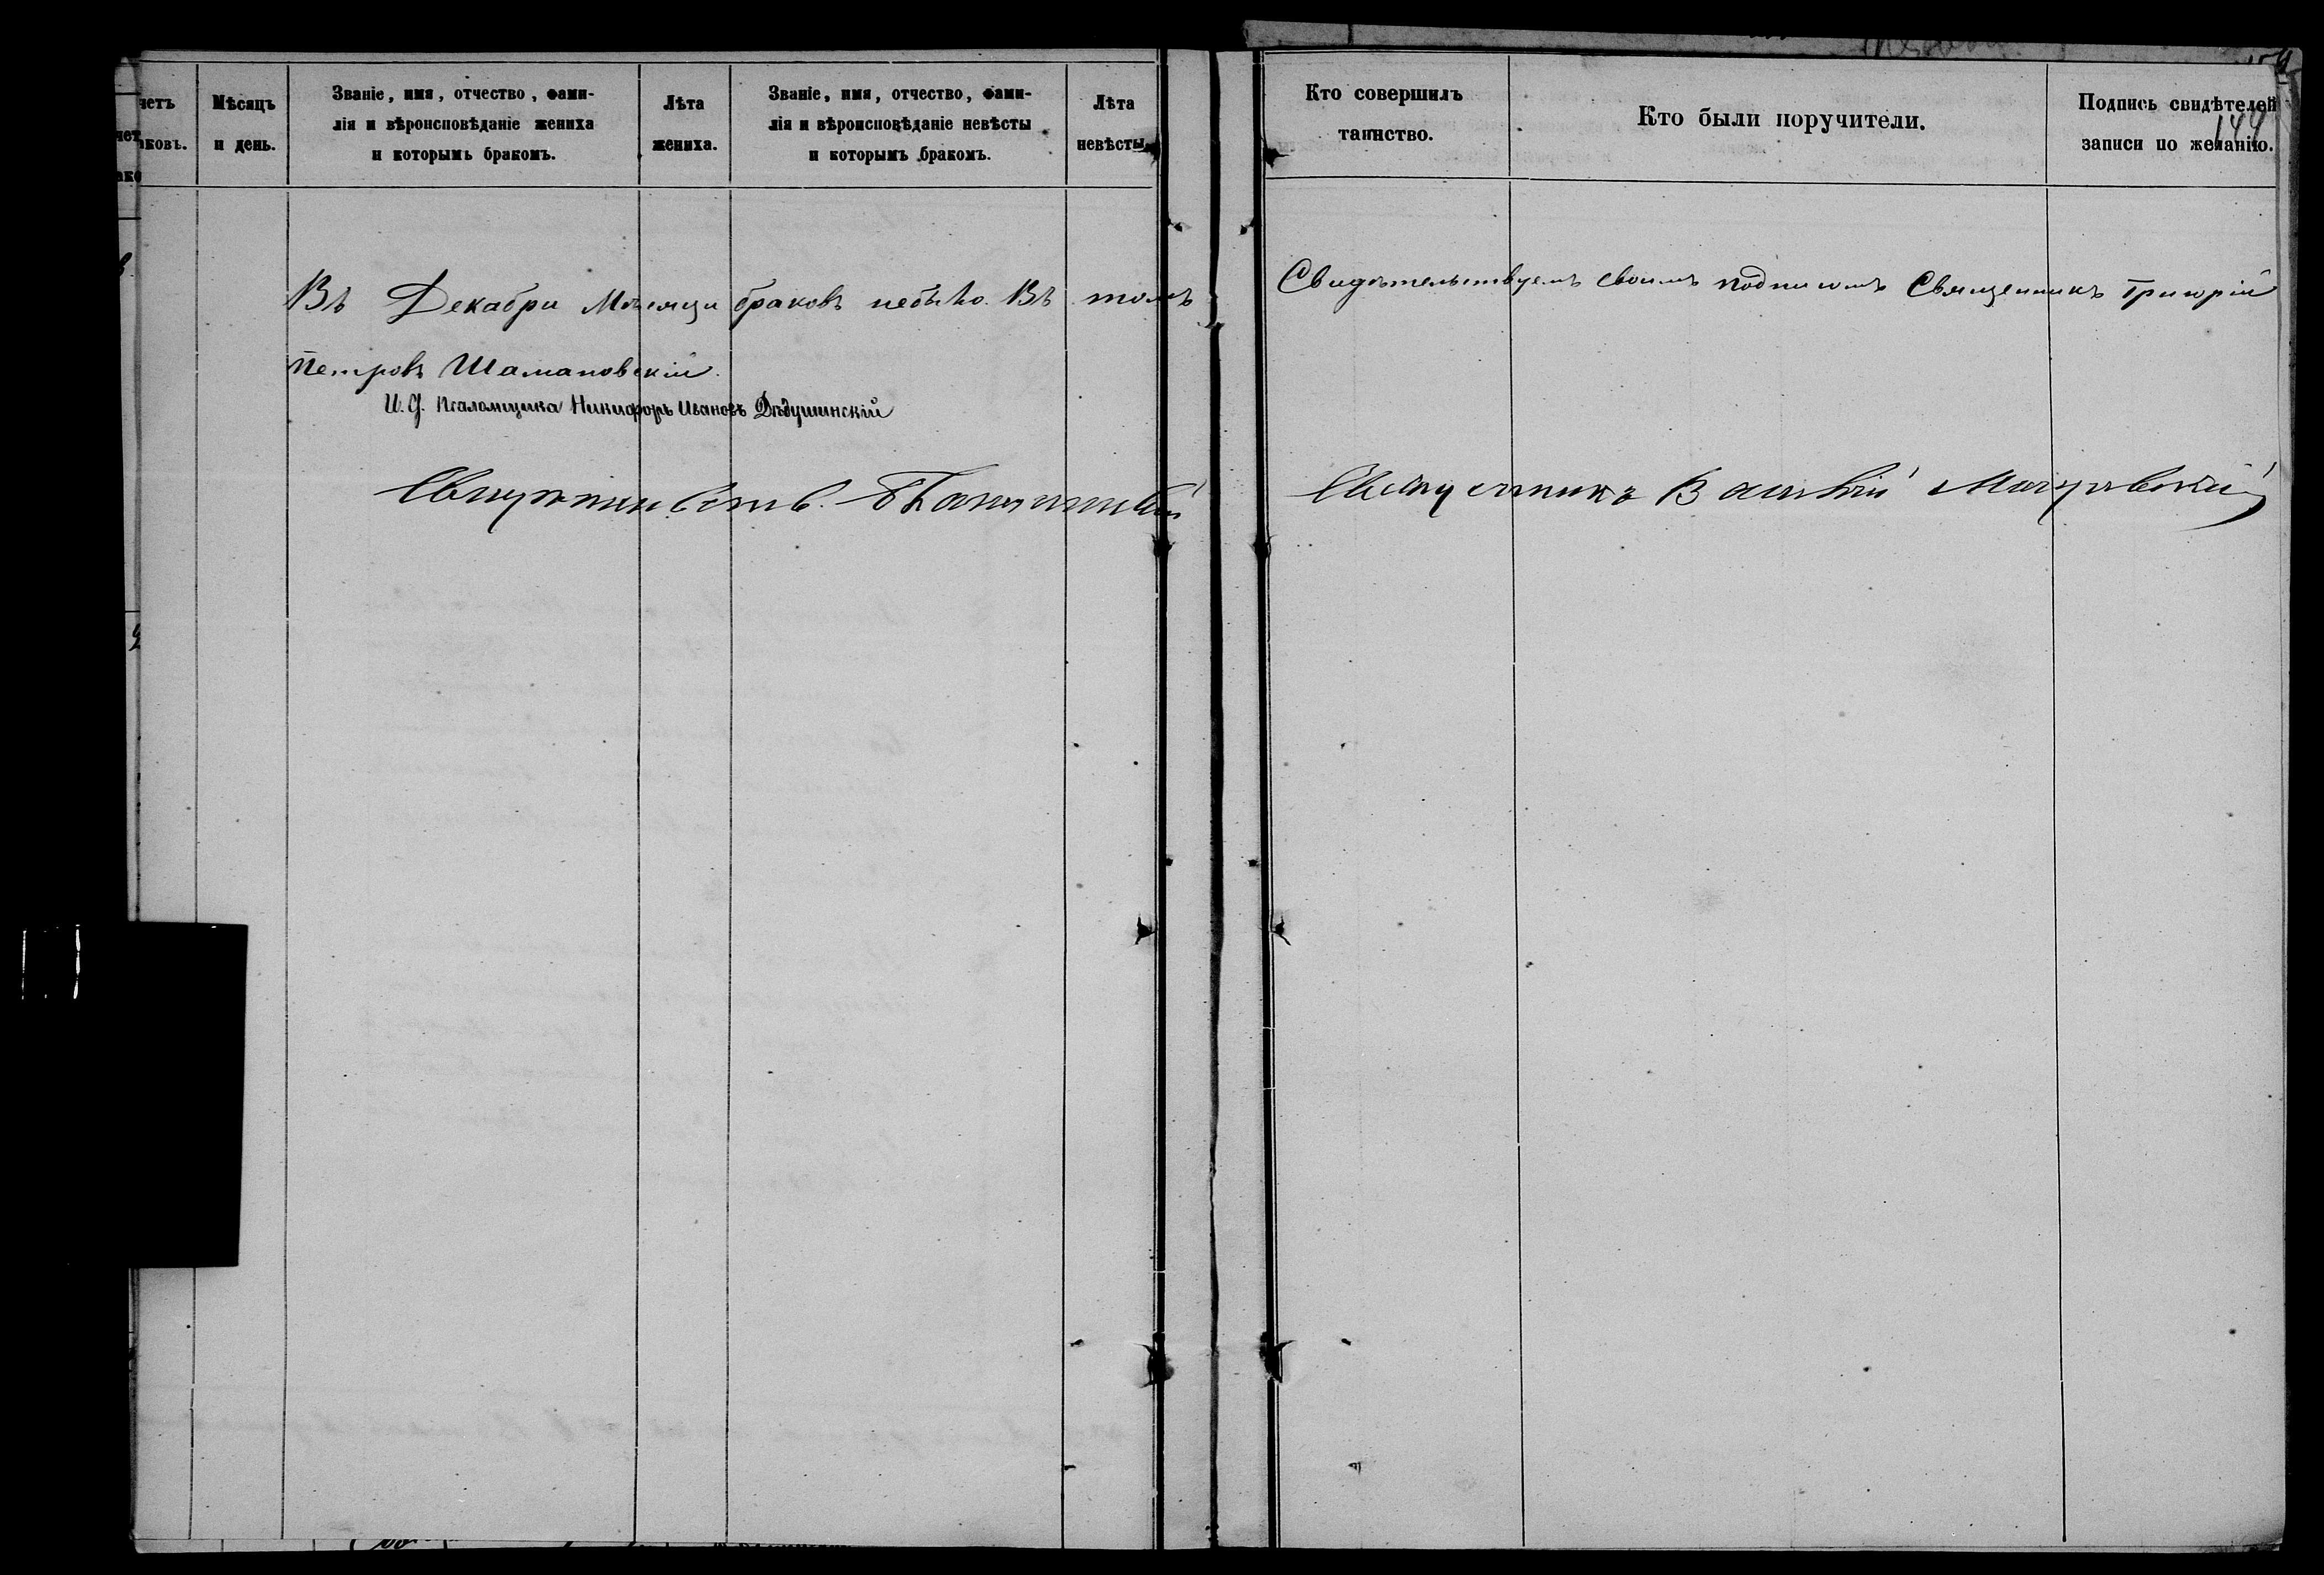 четъ
аковъ.
Мѣсяцъ
и день.
Званіе, имя, отчество, фами-
лія и вѣроисповѣданіе жениха
и которымъ бракомъ.
Лѣта
жениха.
Званіе, имя, отчество, фами-
лія и вѣроисповѣданіе невѣсты
и которымъ бракомъ.
Лѣта
невѣсты
Кто совершилъ
таинство.
Кто были поручители.
Подпись свидѣтелей
записи по желанію.
144
Въ Декабри Мѣсяци браковъ небыло. Въ томъ Свидѣтельствуемъ своимъ подписомъ Священникъ Григорій
Петровъ Шамановскій.
И. Д. Псаломщика Никифоръ Ивановъ Дѣдушинскій
Священникъ Василій